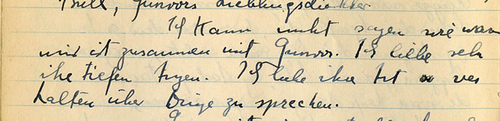 Brull, Gunvors Lieblingsdichter.
Ich kann nicht sagen wie warm
mir ist zusammen mit Gunvor. Ich liebe sehr
ihre tiefen Augen. Ich liebe ihre Art ver
halten über Dinge zu sprechen.